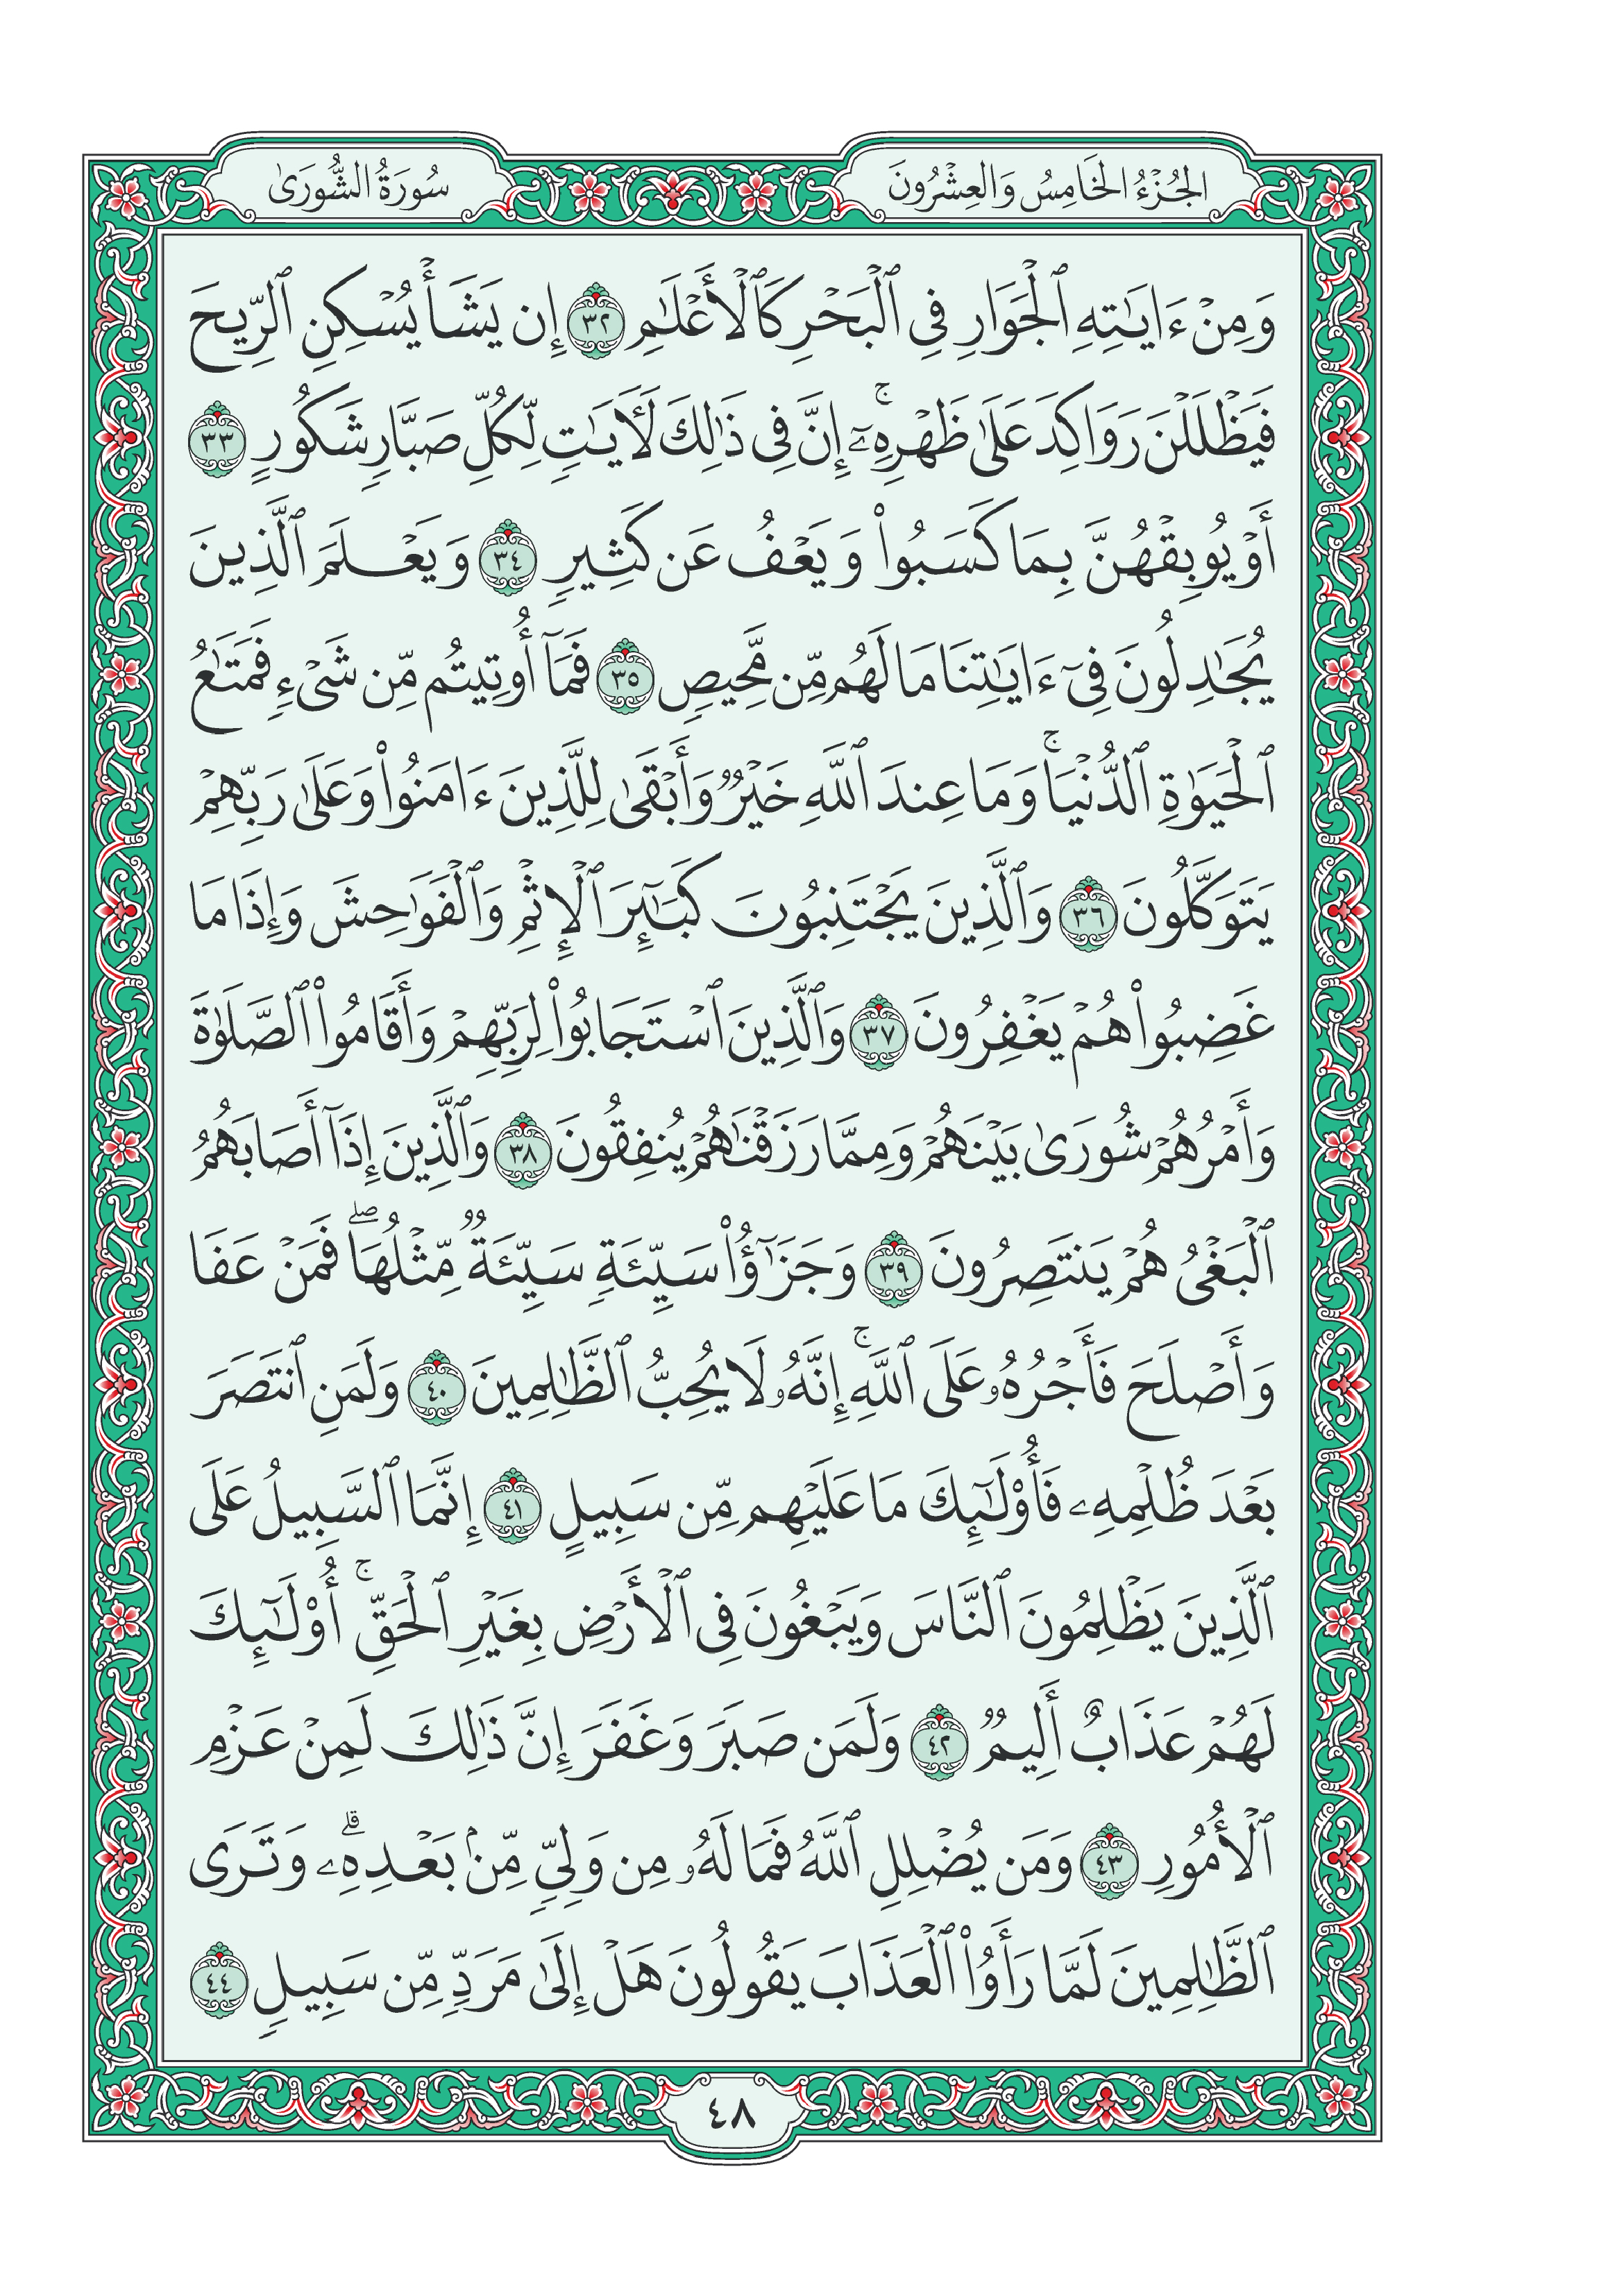 الجُزْءُ الخَامِسُ وَالعِشْرُونَ
سُورَةُ الشُّورَىٰ
وَمِنۡ ءَايَٰتِهِ ٱلۡجَوَارِ فِي ٱلۡبَحۡرِ كَٱلۡأَعۡلَٰمِ ٣٢ إِن يَشَأۡ يُسۡكِنِ ٱلرِّيحَ
فَيَظۡلَلۡنَ رَوَاكِدَ عَلَىٰ ظَهۡرِهِۦٓۚ إِنَّ فِي ذَٰلِكَ لَأٓيَٰتٖ لِّكُلِّ صَبَّارٖ شَكُورٍ ٣٣
أَوۡ يُوبِقۡهُنَّ بِمَا كَسَبُواْ وَيَعۡفُ عَن كَثِيرٖ ٣٤ وَيَعۡلَمَ ٱلَّذِينَ
يُجَٰدِلُونَ فِيٓ ءَايَٰتِنَا مَا لَهُم مِّن مَّحِيصٖ ٣٥ فَمَآ أُوتِيتُم مِّن شَيۡءٖ فَمَتَٰعُ
ٱلۡحَيَوٰةِ ٱلدُّنۡيَاۚ وَمَا عِندَ ٱللَّهِ خَيۡرٞ وَأَبۡقَىٰ لِلَّذِينَ ءَامَنُواْ وَعَلَىٰ رَبِّهِمۡ
يَتَوَكَّلُونَ ٣٦ وَٱلَّذِينَ يَجۡتَنِبُونَ كَبَٰٓئِرَ ٱلۡإِثۡمِ وَٱلۡفَوَٰحِشَ وَإِذَا مَا
غَضِبُواْ هُمۡ يَغۡفِرُونَ ٣٧ وَٱلَّذِينَ ٱسۡتَجَابُواْ لِرَبِّهِمۡ وَأَقَامُواْ ٱلصَّلَوٰةَ
وَأَمۡرُهُمۡ شُورَىٰ بَيۡنَهُمۡ وَمِمَّا رَزَقۡنَٰهُمۡ يُنفِقُونَ ٣٨ وَٱلَّذِينَ إِذَآ أَصَابَهُمُ
ٱلۡبَغۡيُ هُمۡ يَنتَصِرُونَ ٣٩ وَجَزَٰٓؤُاْ سَيِّئَةٖ سَيِّئَةٞ مِّثۡلُهَاۖ فَمَنۡ عَفَا
وَأَصۡلَحَ فَأَجۡرُهُۥ عَلَى ٱللَّهِۚ إِنَّهُۥ لَا يُحِبُّ ٱلظَّٰلِمِينَ ٤٠ وَلَمَنِ ٱنتَصَرَ
بَعۡدَ ظُلۡمِهِۦ فَأُوْلَٰٓئِكَ مَا عَلَيۡهِم مِّن سَبِيلٍ ٤١ إِنَّمَا ٱلسَّبِيلُ عَلَى
ٱلَّذِينَ يَظۡلِمُونَ ٱلنَّاسَ وَيَبۡغُونَ فِي ٱلۡأَرۡضِ بِغَيۡرِ ٱلۡحَقِّۚ أُوْلَٰٓئِكَ
لَهُمۡ عَذَابٌ أَلِيمٞ ٤٢ وَلَمَن صَبَرَ وَغَفَرَ إِنَّ ذَٰلِكَ لَمِنۡ عَزۡمِ
ٱلۡأُمُورِ ٤٣ وَمَن يُضۡلِلِ ٱللَّهُ فَمَا لَهُۥ مِن وَلِيّٖ مِّنۢ بَعۡدِهِۦۗ وَتَرَى
ٱلظَّٰلِمِينَ لَمَّا رَأَوُاْ ٱلۡعَذَابَ يَقُولُونَ هَلۡ إِلَىٰ مَرَدّٖ مِّن سَبِيلٖ ٤٤
٤٨